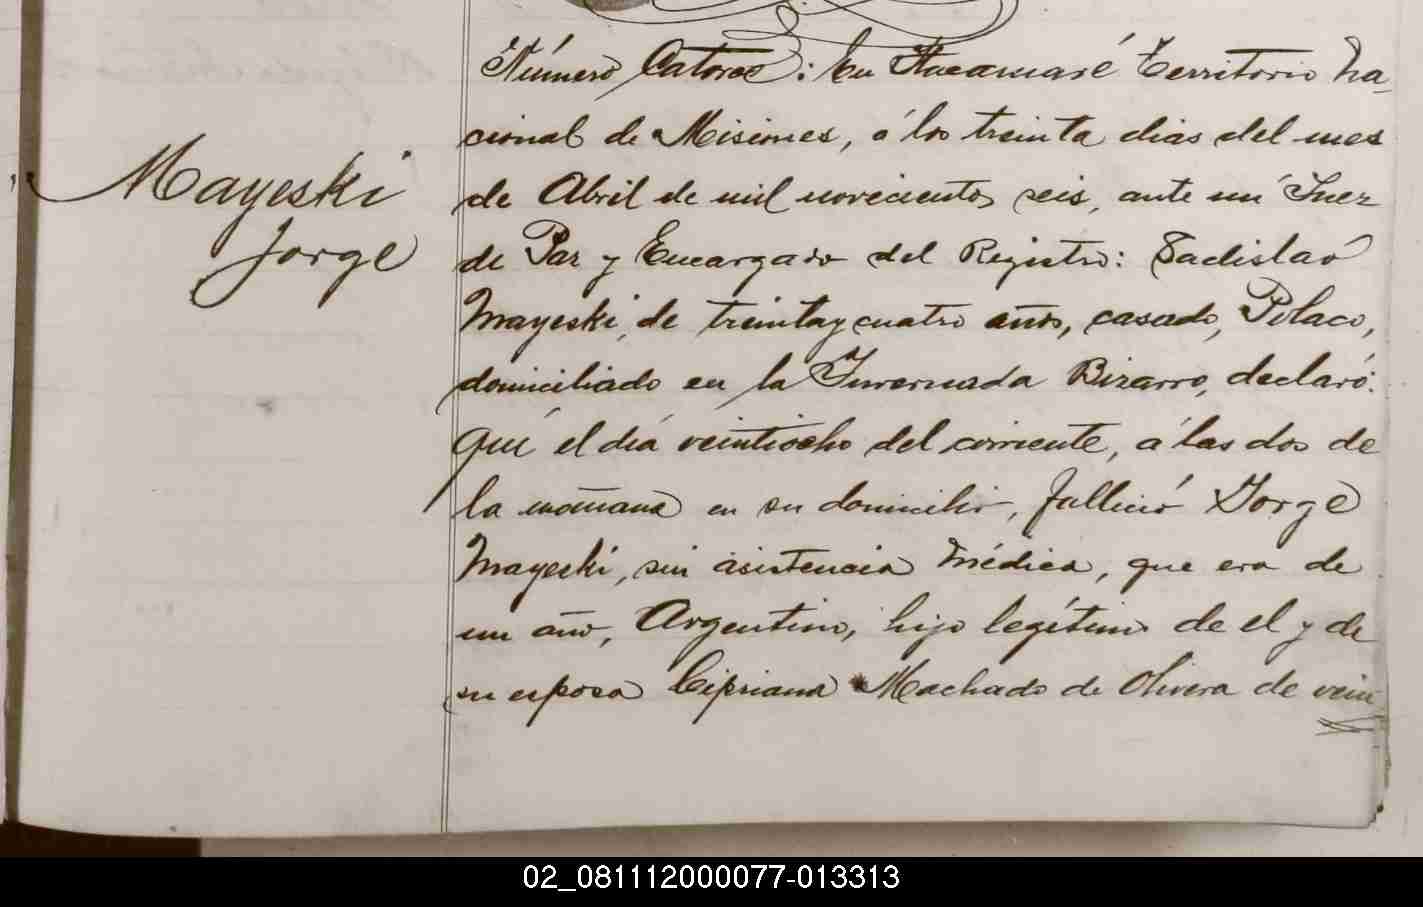 Mayeski
Jorge
Número Catorce: En Itacaruaré Territorio Na-
cional de Misiones, á los treinta dias del mes
de Abril de mil novecientos seis, ante mi Juez
de Paz y Encargado del Registro: Ladislao
Mayeski, de treinta y cuatro años, casado, Polaco,
domiciliado en la Invernada Bizarro, declaró:
Que el día veintiocho del corriente, á las dos de
la mañana en su domicilio, falleció Jorge
Mayeski, sin asistencia médica, que era de
un año, Argentino, hijo legítimo de el y de
su esposa Cipriana Machado de Olivera de vein
02_081112000077-013313